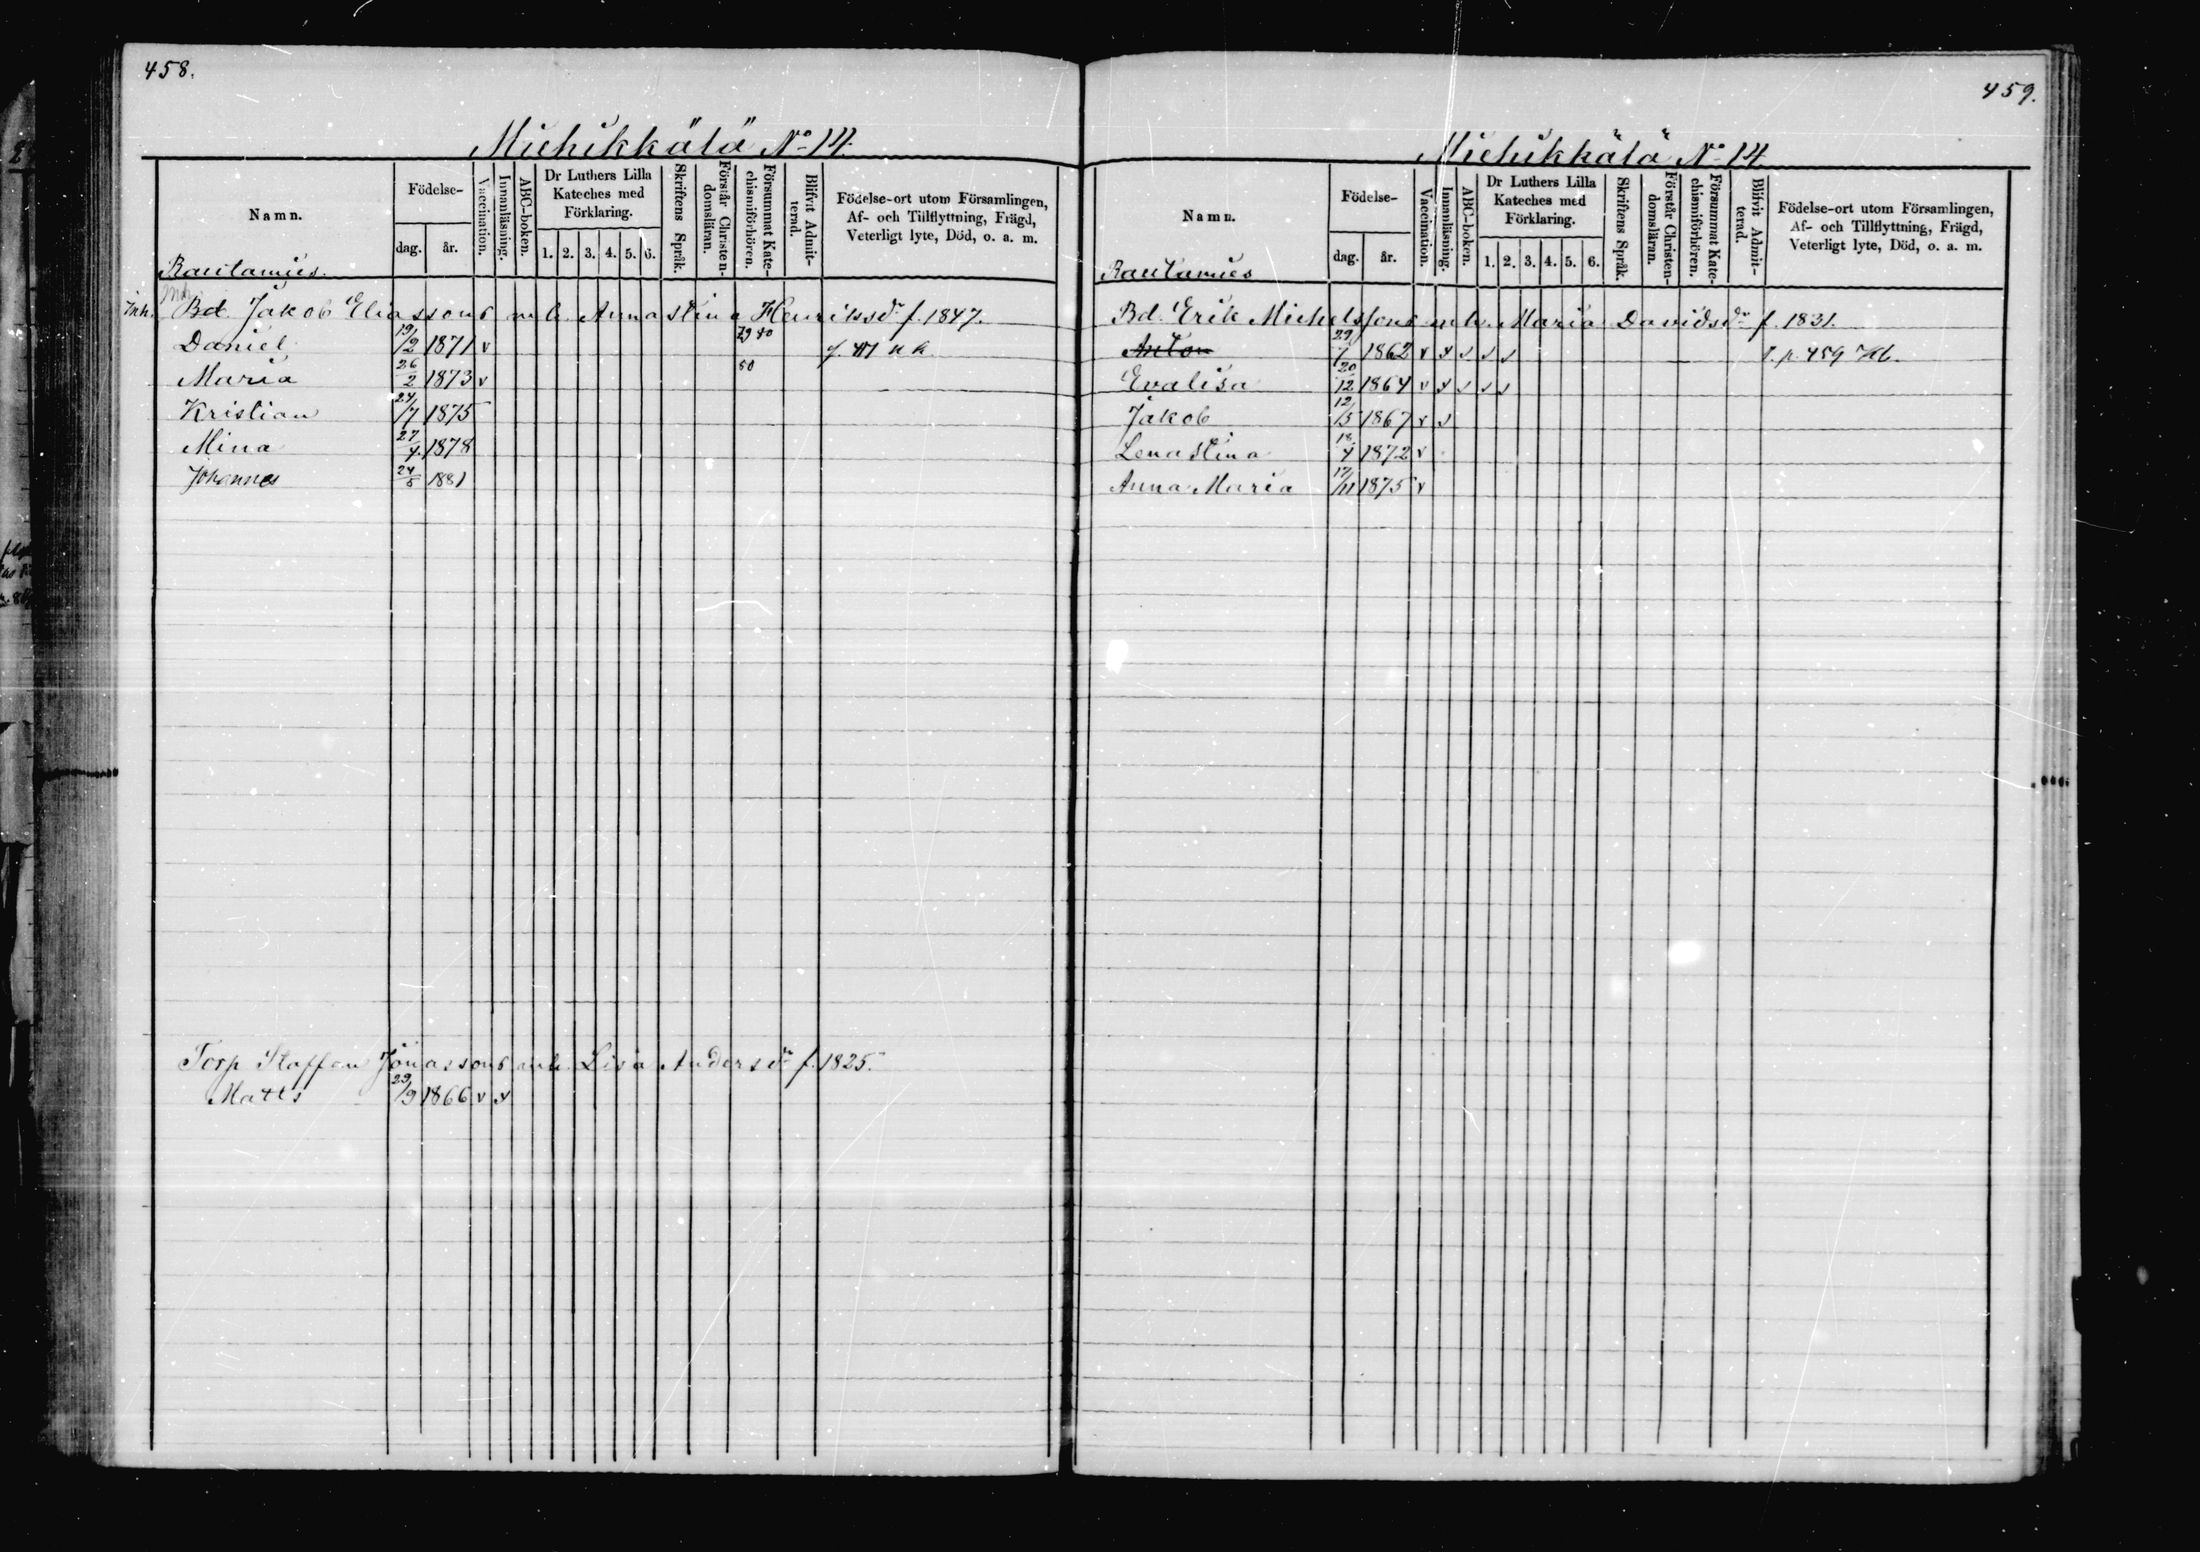 458.
Miehikkälä No 14.
Namn. Födelse- dag. år. Vaccination. Innanläsning. ABC-boken. Dr Luthers Lilla Kateches med Förklaring. 1. 2. 3. 4. 5. 6. Skriftens Språk. Förstår Christendomsläran. Försummat Katechismiförhören. Blifvit Admitterad. Födelse-ort utom Församlingen, Af- och Tillflyttning, Frägd, Veterligt lyte, Död, o. a. m.
Rautamies.
Inh. Bd. Jakob Eliassons enk. Anna Stina Henriksdr f. 1847.
Daniel 19/2 1871 v 79 80
Maria 26/2 1873 v 80
Kristian 24/7 1875
Mina 27/4 1878
Johannes 24/5 1881
Torp Staffan Jonassons enk. Lisa Andersdr f. 1825.
Matts 29/9 1866 v v
459.
Miehikkälä No 14.
Namn. Födelse- dag. år. Vaccination. Innanläsning. ABC-boken. Dr Luthers Lilla Kateches med Förklaring. 1. 2. 3. 4. 5. 6. Skriftens Språk. Förstår Christendomsläran. Försummat Katechismiförhören. Blifvit Admitterad. Födelse-ort utom Församlingen, Af- och Tillflyttning, Frägd, Veterligt lyte, Död, o. a. m.
Rautamies
Bd. Erik Michelssons enk. Maria Davidsdr f. 1831.
Anton 29/7 1862 v v v v v p. 459
Evalisa 20/12 1864 v v v v v
Jakob 12/5 1867 v v
Lena Stina 18/4 1872 v
Anna Maria 17/11 1875 v